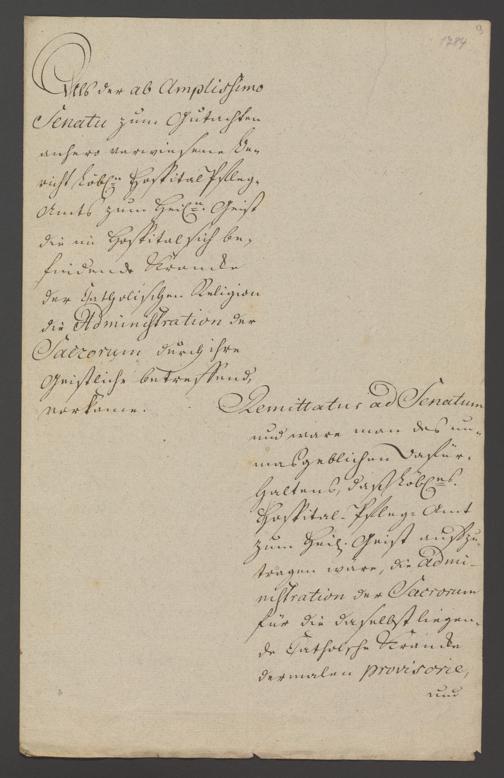 1784
9
Als der ab Amplissimo
Senatu zum Gutachten
anhero verwiesene Be-
richt Löbn Hospital Pfleg-
Amts zum Heiln Geist
die im Hospital sich be-
findende Krancke
der Catholischen Religion
die Administration der
Sacrorum durch ihre
Geistliche betreffend,
vorkame.
Remittatur ad Senatum
und ware man des un-
masgeblichen Dafür-
haltens, daß Löbes
Hospital-Pfleg-Amt
zum Heil: Geist aufzu-
tragen wäre, die Admi-
nistration der Sacrorum
für die daselbst liegen-
de Catholsche Krancke
dermalen provisorie,
und